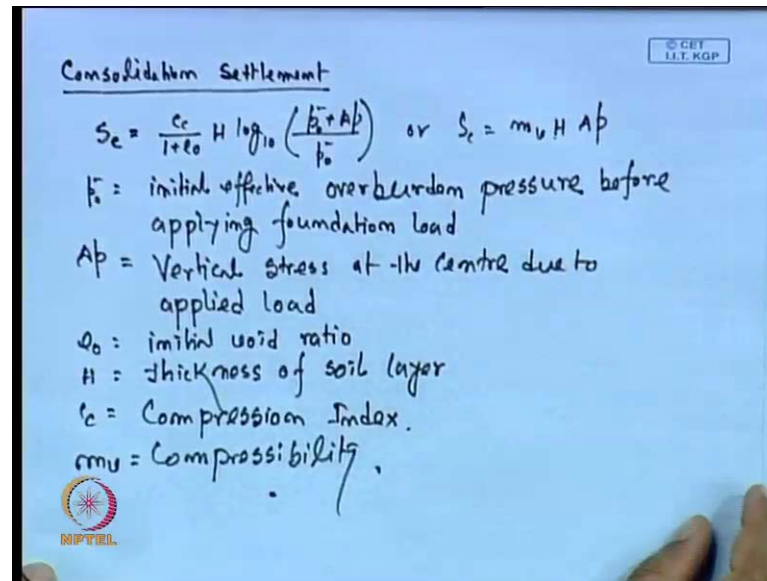 © CET
I.I.T. KGP
Consolidation Settlement
Sc = Cc/(1+e0) H log10 ((p̄0 + Δp)/p̄0) or Sc = mv H Δp
p̄0 = initial effective overburden pressure before
applying foundation load
Δp = Vertical stress at the Centre due to
applied load
e0 = initial void ratio
H = thickness of soil layer
Cc = Compression Index.
mv = Compressibility.
NPTEL